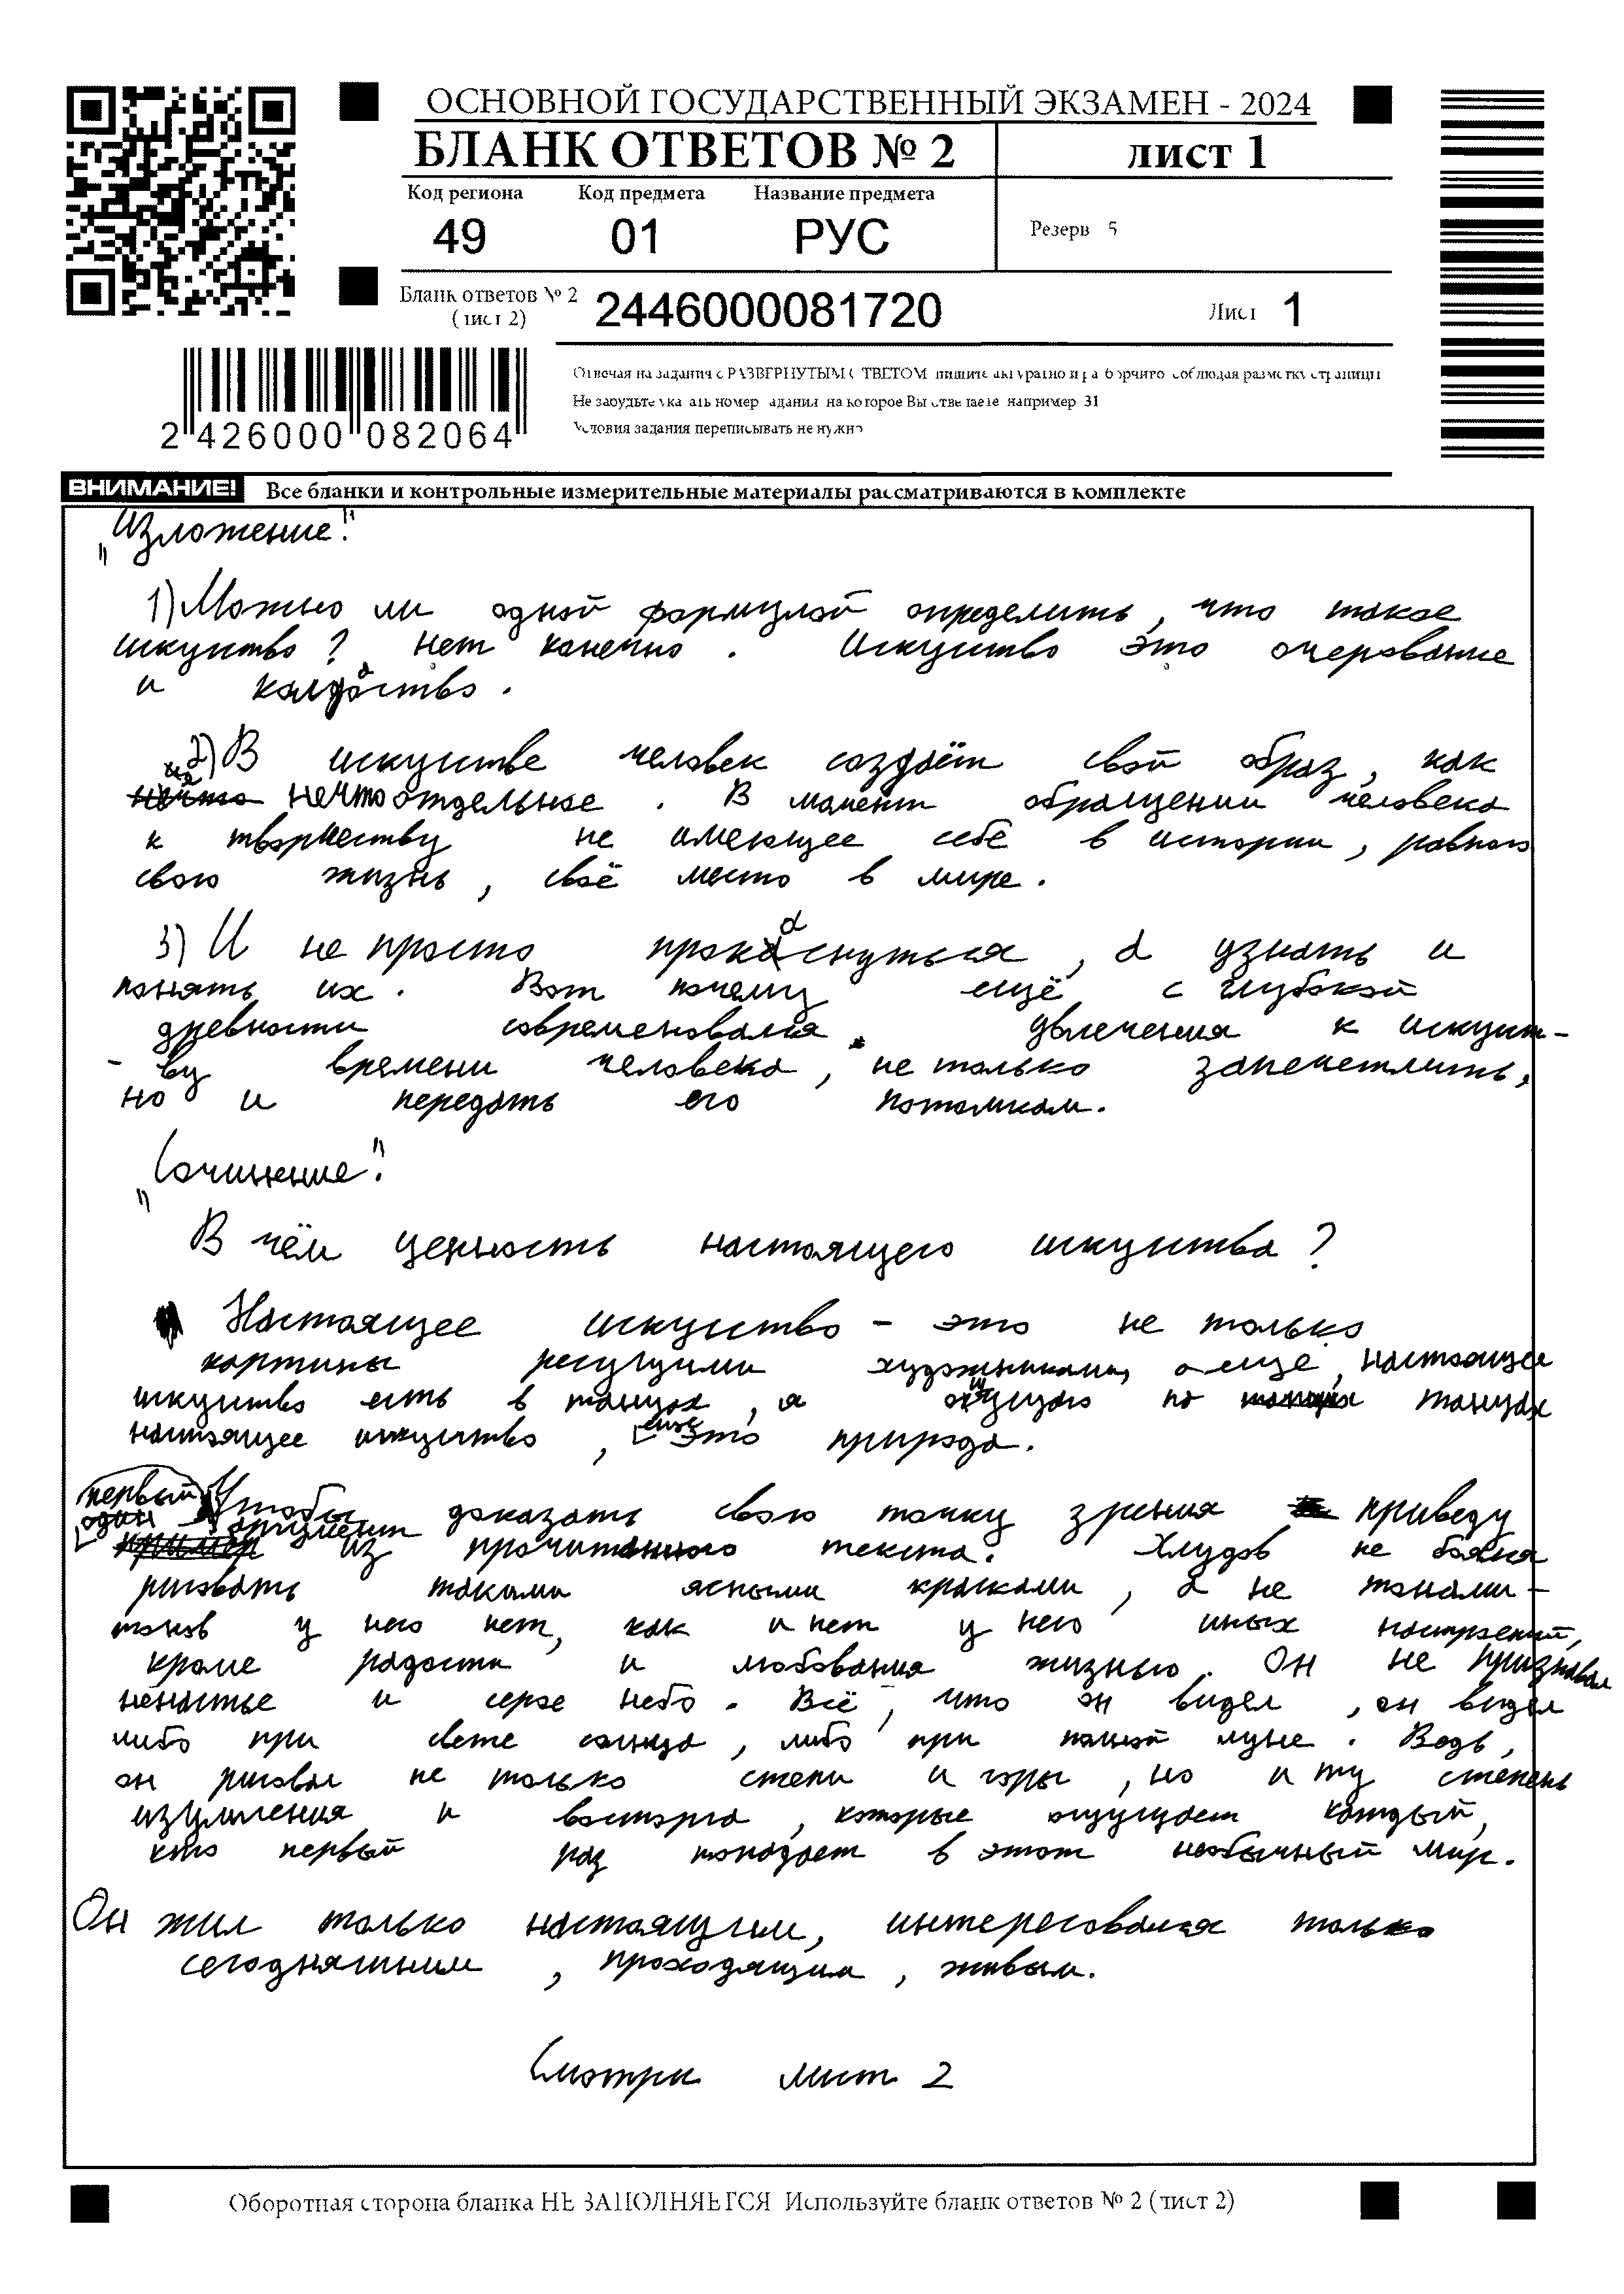 ОСНОВНОЙ ГОСУДАРСТВЕННЫЙ ЭКЗАМЕН - 2024
БЛАНК ОТВЕТОВ № 2
лист 1
Код региона Код предмета Название предмета
49 01 РУС
Резерв 5
Бланк ответов № 2
(лист 2)
2446000081720
Лист 1
Отвечая на задания с РАЗВЕРНУТЫМ ОТВЕТОМ пишите аккуратно и разборчиво соблюдая разметку страницы
Не забудьте указать номер задания на которое Вы отвечаете например 31
Условия задания переписывать не нужно
2 426000 082064
ВНИМАНИЕ! Все бланки и контрольные измерительные материалы рассматриваются в комплекте
„Изложение."
1) Можно ли одной формулой определить, что такое
искуство? нет конечно. Искуство это очерование
и колдаство.
2) В искустве человек создаёт свой образ, как
нечто отдельное. В момент обращении человека
к творчеству не имеющее себе в истории, равного
свою жизнь, своё место в мире.
3) И не просто прокаснуться, а узнать и
понять их. Вот почему ещё с глубокой
древности современовался увлечения к искуст-
- ву времени человека, не только запечетлить,
но и передать его потомкам.
„Сочинение."
В чём ценность настоящего искуства?
Настоящее искуство - это не только
картины ресущими художниками, а ещё, настоящее
искуство есть в танцах, я по танцах
настоящее искуство, ещё это природа.
первый Чтобы доказать свою точку зрения приведу
один аргумент из прочитанного текста. Хлудов не боялся
рисовать такими ясными красками, а не тонами -
тонов у него нет, как и нет у него иных настроений,
кроме радости и любования жизнью. Он не признавал
ненастье и серое небо. Всё, что он видел, он видел
либо при свете солнца, либо при полной луне. Ведь,
он рисовал не только степи и горы, но и ту степень
изумления и восторга, которые ощущает каждый,
кто первый раз попадает в этот необычный мир.
Он жил только настоящим, интересовался только
сегодняшним, проходящим, живым.
Смотри лист 2
Оборотная сторона бланка НЕ ЗАПОЛНЯЕТСЯ Используйте бланк ответов № 2 (лист 2)